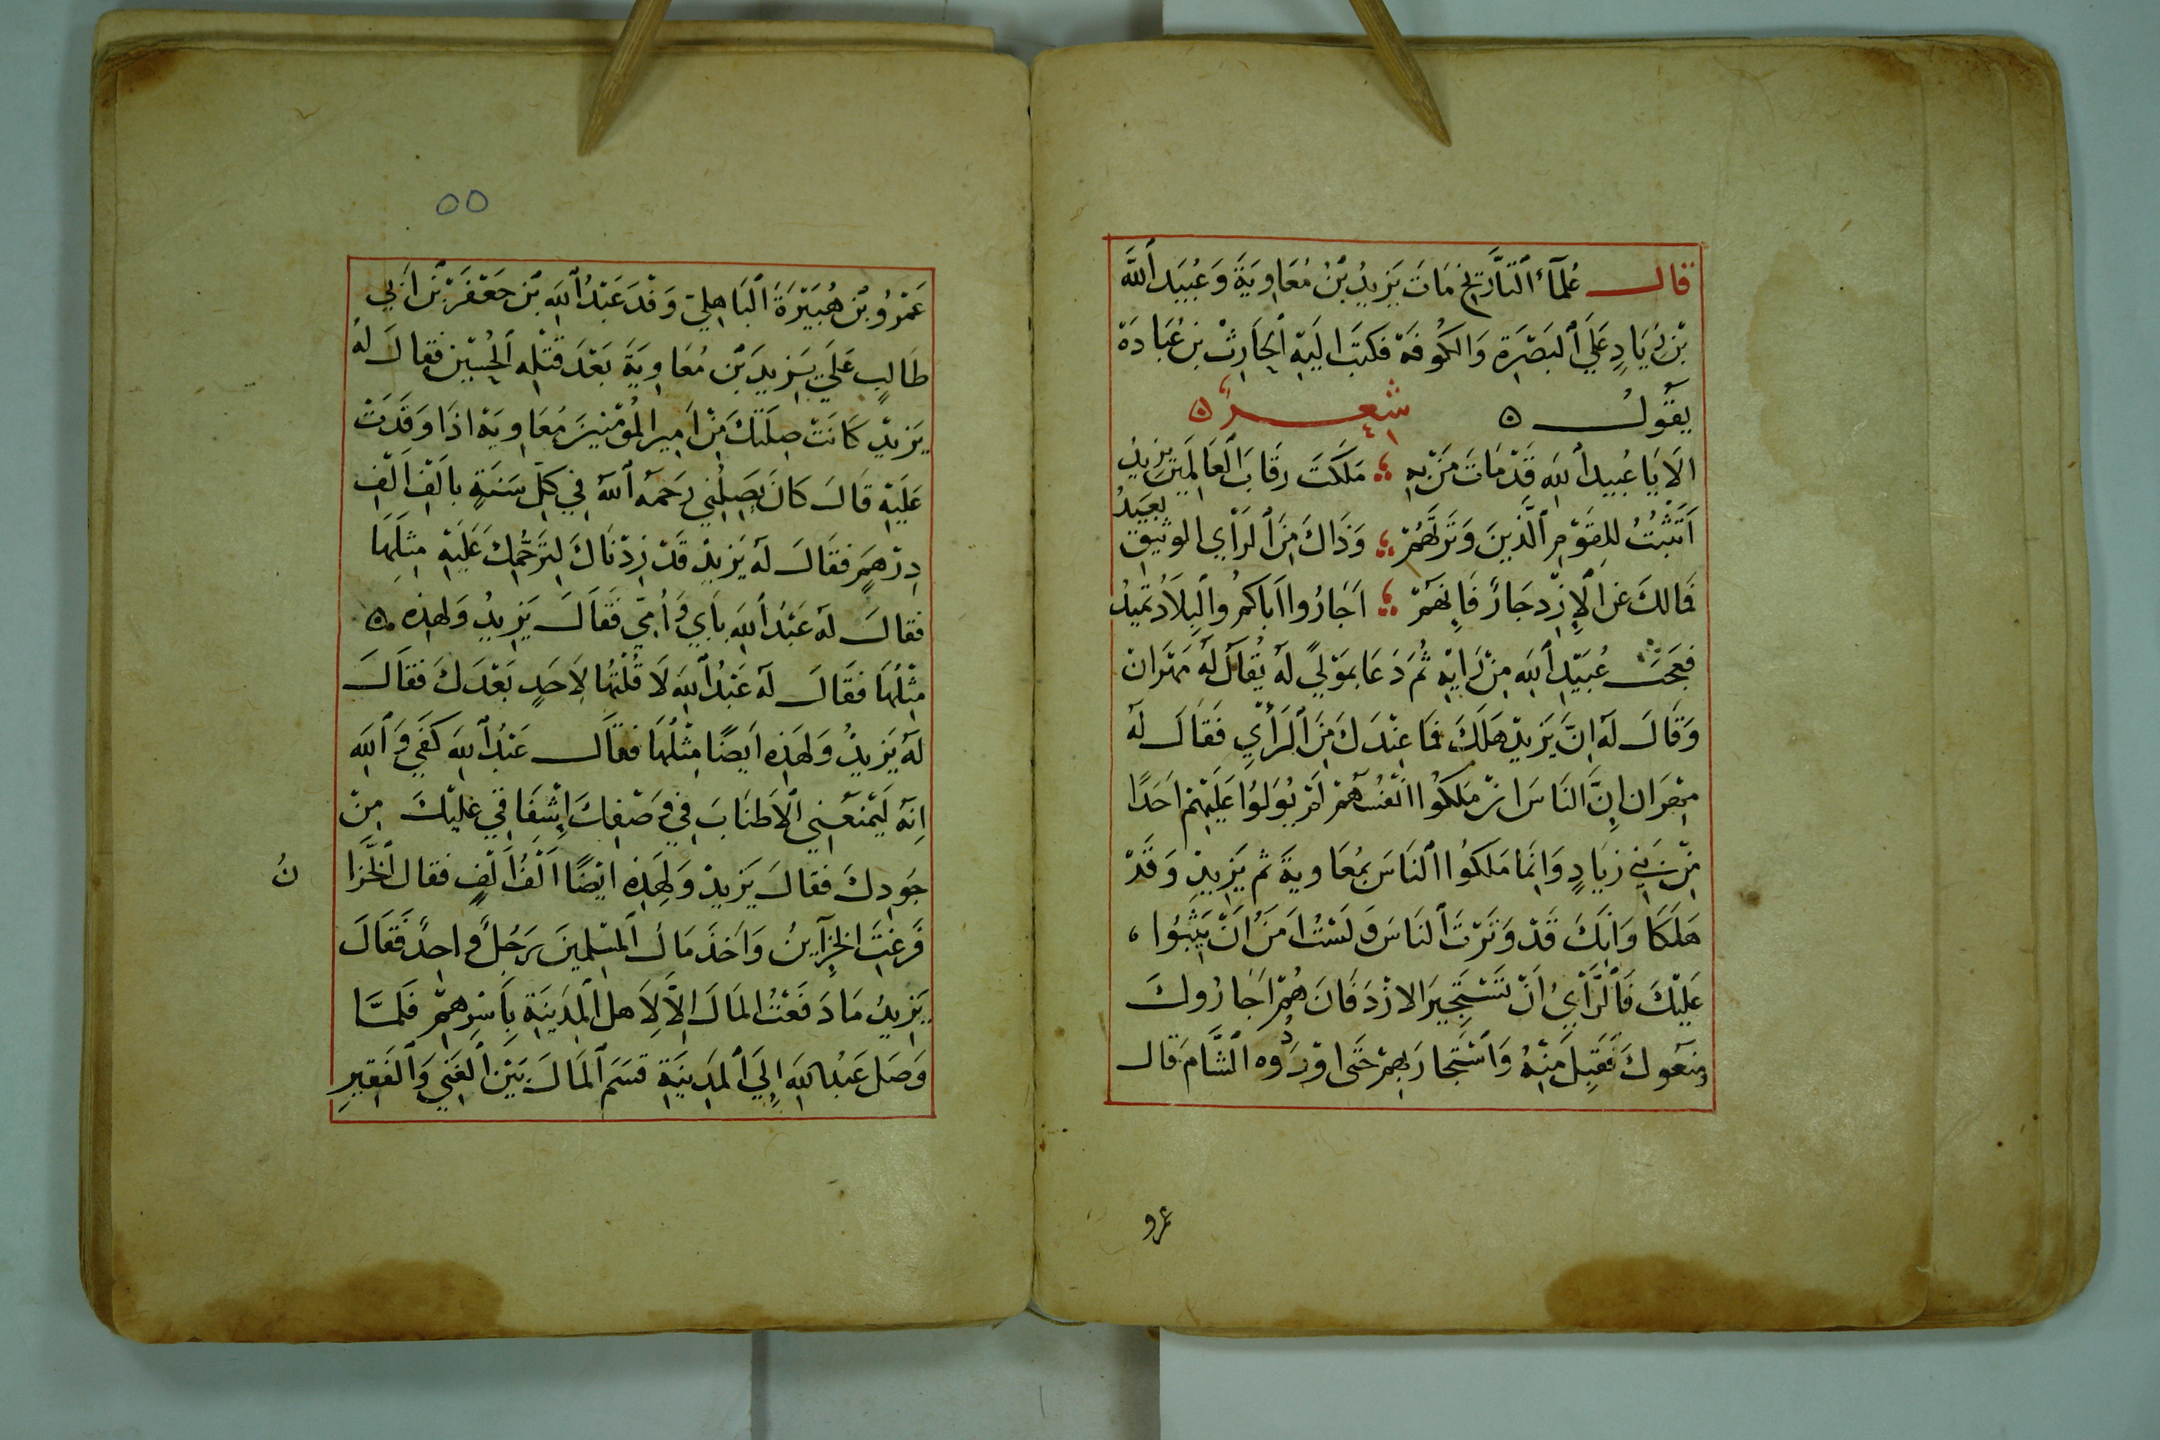 قال عُلَمآءُ ٱلتَّارِيخِ مَاتَ يَزِيدُ بْنُ مُعَاوِيَةَ وَعُبَيد ٱللَّه
بْن زِيَادٍ عَلَي ٱلبَصْرَةِ وَالكُوفَة فكتبَ الَيهِ ٱلحَارِثْ بن عُبَادَة
يقَولُ ه شِعرٌ ه
الَايَا عُبيد ٱللَه قَدْ مَاتَ مَنْ بهِ ؛ مَلَكتَ رِقَابَ ٱلعَالَمِينَ يَزيدُ
اَتَثْبُتُ لِلقَوْمِ ٱلَّذينَ وَتَرْتَهُمْ ؛ وَذَاكَ مِنَ ٱلرَأْيِ الوثيقِ بعَيدُ
فَمالكَ عَن ٱلاِزْد جَارٌ فَاِنهُمْ ؛ اَجَارُوا اَباكمُ والبِلَادُ تميدُ
فعَجبَ عُبَيْد ٱللَه مِنْ رَايهِ ثُمَ دَعَا بمَوْليً لهُ يُقالُ لهُ مَهرَان
وَقَالَ لهُ اِنَّ يَزيدْ هَلَكَ فَمَا عِنْدَكَ مِنَ ٱلرَأْيِ فَقَالَ لهُ
مهَرَان اِنَّ النَاسَ اِنْ مَلكُوا انْفُسَهُمْ لَمْ يُوَلوُا عَلَيْهِمْ اَحَدًا
مِنْ بَنِي زيَادٍ وَاِنمَا مَلَكوُا ٱلنَاسَ بمُعَاويةَ ثم يَزِيدِ وَقَدْ
هَلَكَا وَاِنكَ قَدْ وَتَرْتَ ٱلنَاسَ وَلسْتُ اَمَنُ اَنْ يَثِبُوا ،
عَليْكَ فَٱلرَّأْيُ اَنْ تَسْتَجِيرَ الازْدَ فَاِنَ هُمْ اَجَارُوكَ
منعَوكَ فَقَبِلَ مِنْهُ وَٱسْتَجارَ بهِمْ حَتى اوْرَدُوه ٱلشَّام قال
عمرو
٥٥
عَمْرُو بْن هُبَيْرَةَ ٱلبَاهِلِيّ وَفَدَ عَبْدُ ٱللَه بْن جَعْفَرْ بْن اَبي
طَالبٍ عَلَي يَزِيدَ بْن مُعَاوِيَةَ بَعْدَ قَتْلِهِ ٱلحُسَيْن فقالَ لهُ
يَزيدْ كَانَتْ صِلَتكَ مِنْ اَمِيرِ المُؤمْنِينَ مُعَاويَةْ اذَا وَفَدْتَ
عَلَيْهِ قَالَ كانَ يَصِلُني رَحمَهُ ٱللهُ فِي كلِ سَنَةٍ بالَفِ اَلْفِ
دِرْهَمٍ فقَالَ لهُ يَزيدْ قَدْ زِدْنَاكَ لِتَرَحُّمِكَ عَلَيْهِ مِثلَهَا
فقالَ لهُ عَبْدُ ٱللَه بأبي وَاُمِّي فَقَالَ يَزيدُ وَلهذِه ه
مِثْلُهَا فقَالَ لهُ عَبْدُ ٱللَه لَا قُلْتُهَا لاِحَدٍ بَعْدَكَ فقَالَ
لهُ يَزيدُ وَلهَذِه اَيضًا مِثلُهَا فقَالَ عَبْدُ ٱللَه كَفَي وَٱللَه
اِنهُ لَيَمْنَعُنِي ٱلاطنَابَ فِي وَصْفِكَ اِشِفَاقِي عَليْكَ مِنْ
جَودِكَ فقَالَ يَزيدْ وَلِهَذِهِ ايْضًا اَلْفُ اَلْفٍ فقال ٱلخَزَا
نُ
فَرَغتَ الخزَآينُ وَاَخذَ مَالَ ٱلمسْلمينَ رَجُلٌ وَاحِدٌ فَقَالَ
يَزِيدُ مَا دَفَعْتُ المَالَ اِلَّا لِاَهل ٱلمدَينَةِ بِاَسْرِهِمْ فَلمَّا
وَصَل عَبْد اللَه اِلَي ٱلمدَينَةِ قسَمَ ٱلمَالَ بَيْنَ ٱلغَنِي وَٱلفَقِيرِ